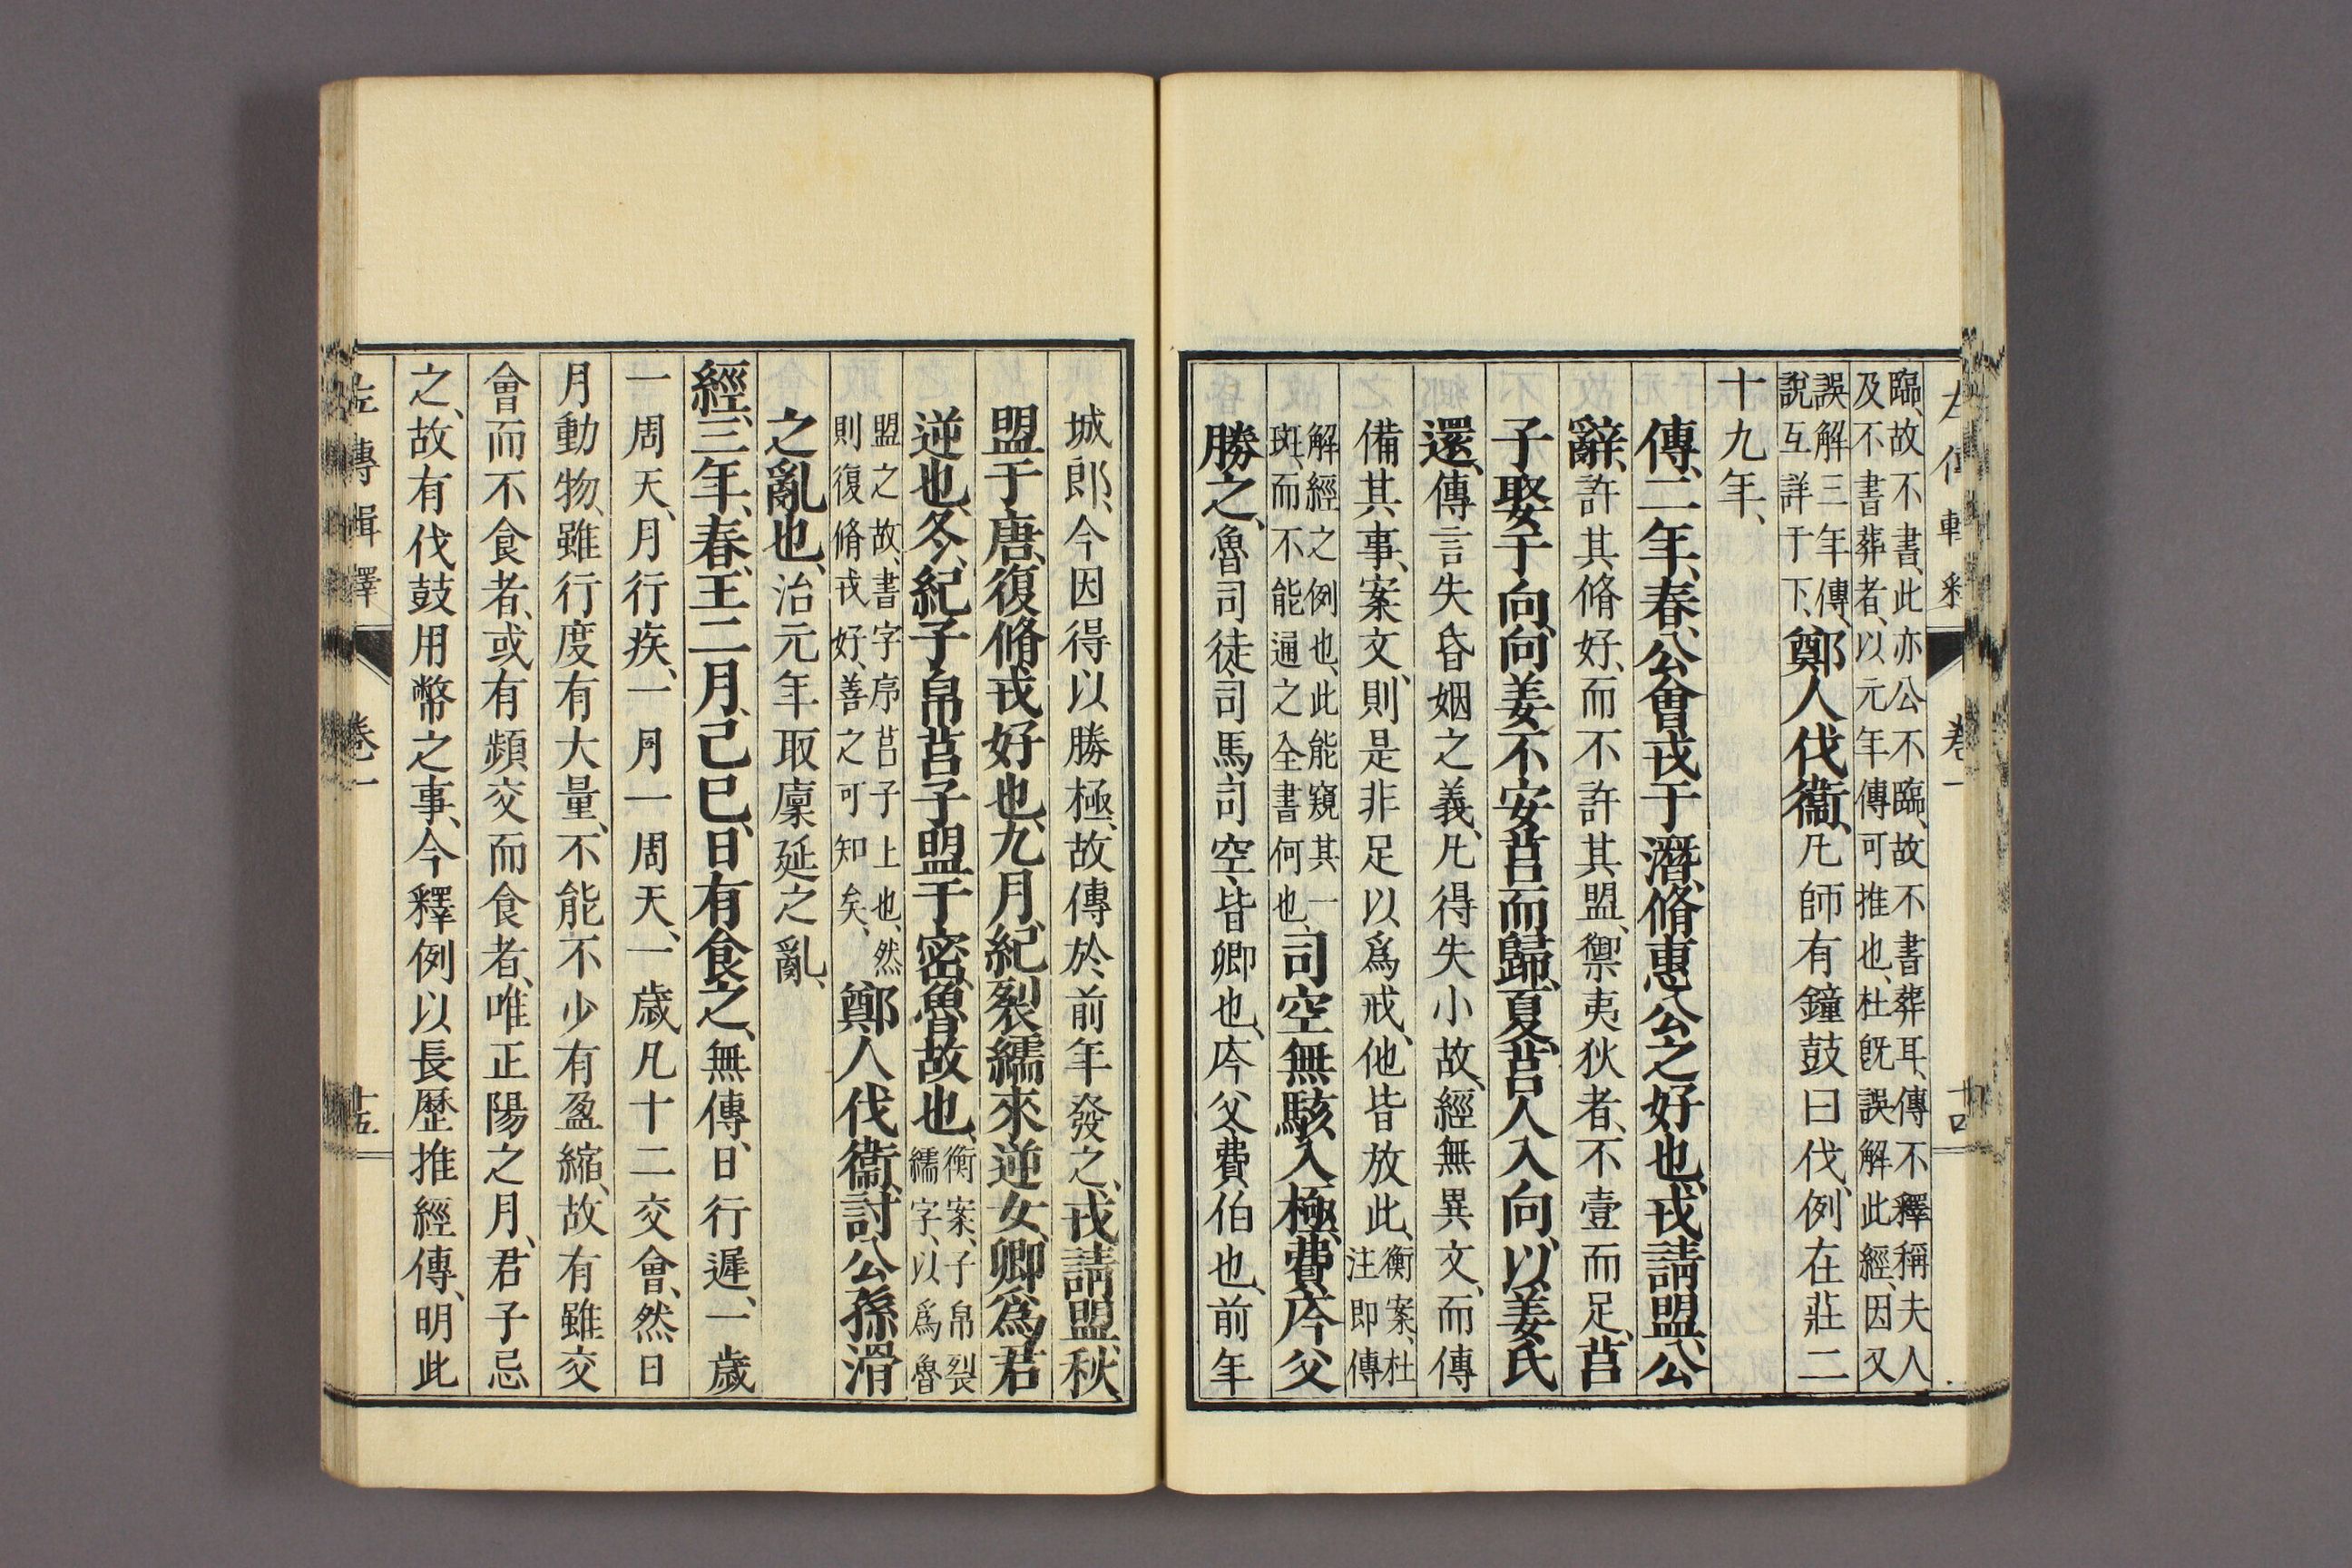 左傳輯釋 卷一 十四
臨、故不書、此亦公不臨、故不書葬耳、傳不釋稱夫人
及不書葬者、以元年傳可推也、杜既誤解此經、因又
誤解三年傳、
說互詳于下、
鄭人伐衞、凡師有鐘鼓曰伐、例在莊二
十九年、
傳、二年、春、公會戎于潛、脩惠公之好也、戎請盟、公
辭、許其脩好、而不許其盟、禦夷狄者、不壹而足、莒
子娶于向、向姜不安莒而歸、夏、莒人入向、以姜氏
還、傳言失昏姻之義、凡得失小故、經無異文、而傳
備其事、案文、則是非足以爲戒、他皆放此、
衡案、杜
注即傳
解經之例也、此能窺其一
斑、而不能通之全書何也、
司空無駭入極、費庈父
勝之、魯司徒司馬司空、皆卿也、庈父費伯也、前年
城郎、今因得以勝極、故傳於前年發之、戎請盟、秋、
盟于唐、復脩戎好也、九月、紀裂繻來逆女、卿爲君
逆也、冬、紀子帛莒子盟于密、魯故也、
衡案、子帛裂
繻字、以爲魯
盟之故、書字序莒子上也、然
則復脩戎好、善之可知矣、
鄭人伐衞、討公孫滑
之亂也、治元年取廩延之亂、
經、三年、春、王二月、己巳、日有食之、無傳、日行遲、一歲
一周天、月行疾、一月一周天、一歲凡十二交會、然日
月動物、雖行度有大量、不能不少有盈縮、故有雖交
會而不食者、或有頻交而食者、唯正陽之月、君子忌
之、故有伐鼓用幣之事、今釋例以長歷推經傳、明此
左傳輯釋 卷一 十五